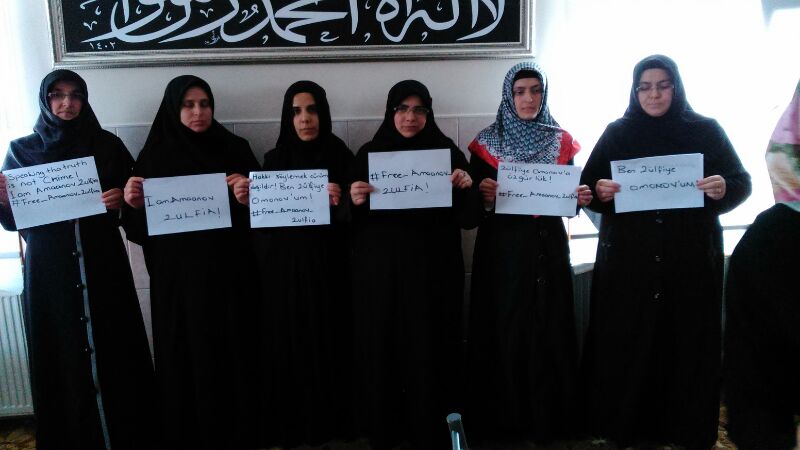 لا إله
محمد رسول
١٤٠٢
Speaking tha truth
is not Crime!
I am Amaanov Zulfia
#Free_Amaanov Zulfia
I am Amaanov
ZULFiA!
Hakkı söylemek cürüm
değildir! Ben Zülfiye
Omonov'um!
#Free_Amaanov
Zulfia
#Free_Amaanov
ZULFiA!
Zülfiye Omonov'a
özgürlük!
#Free_Amaanov Zulfia
Ben Zülfiye
OMONOV'UM!